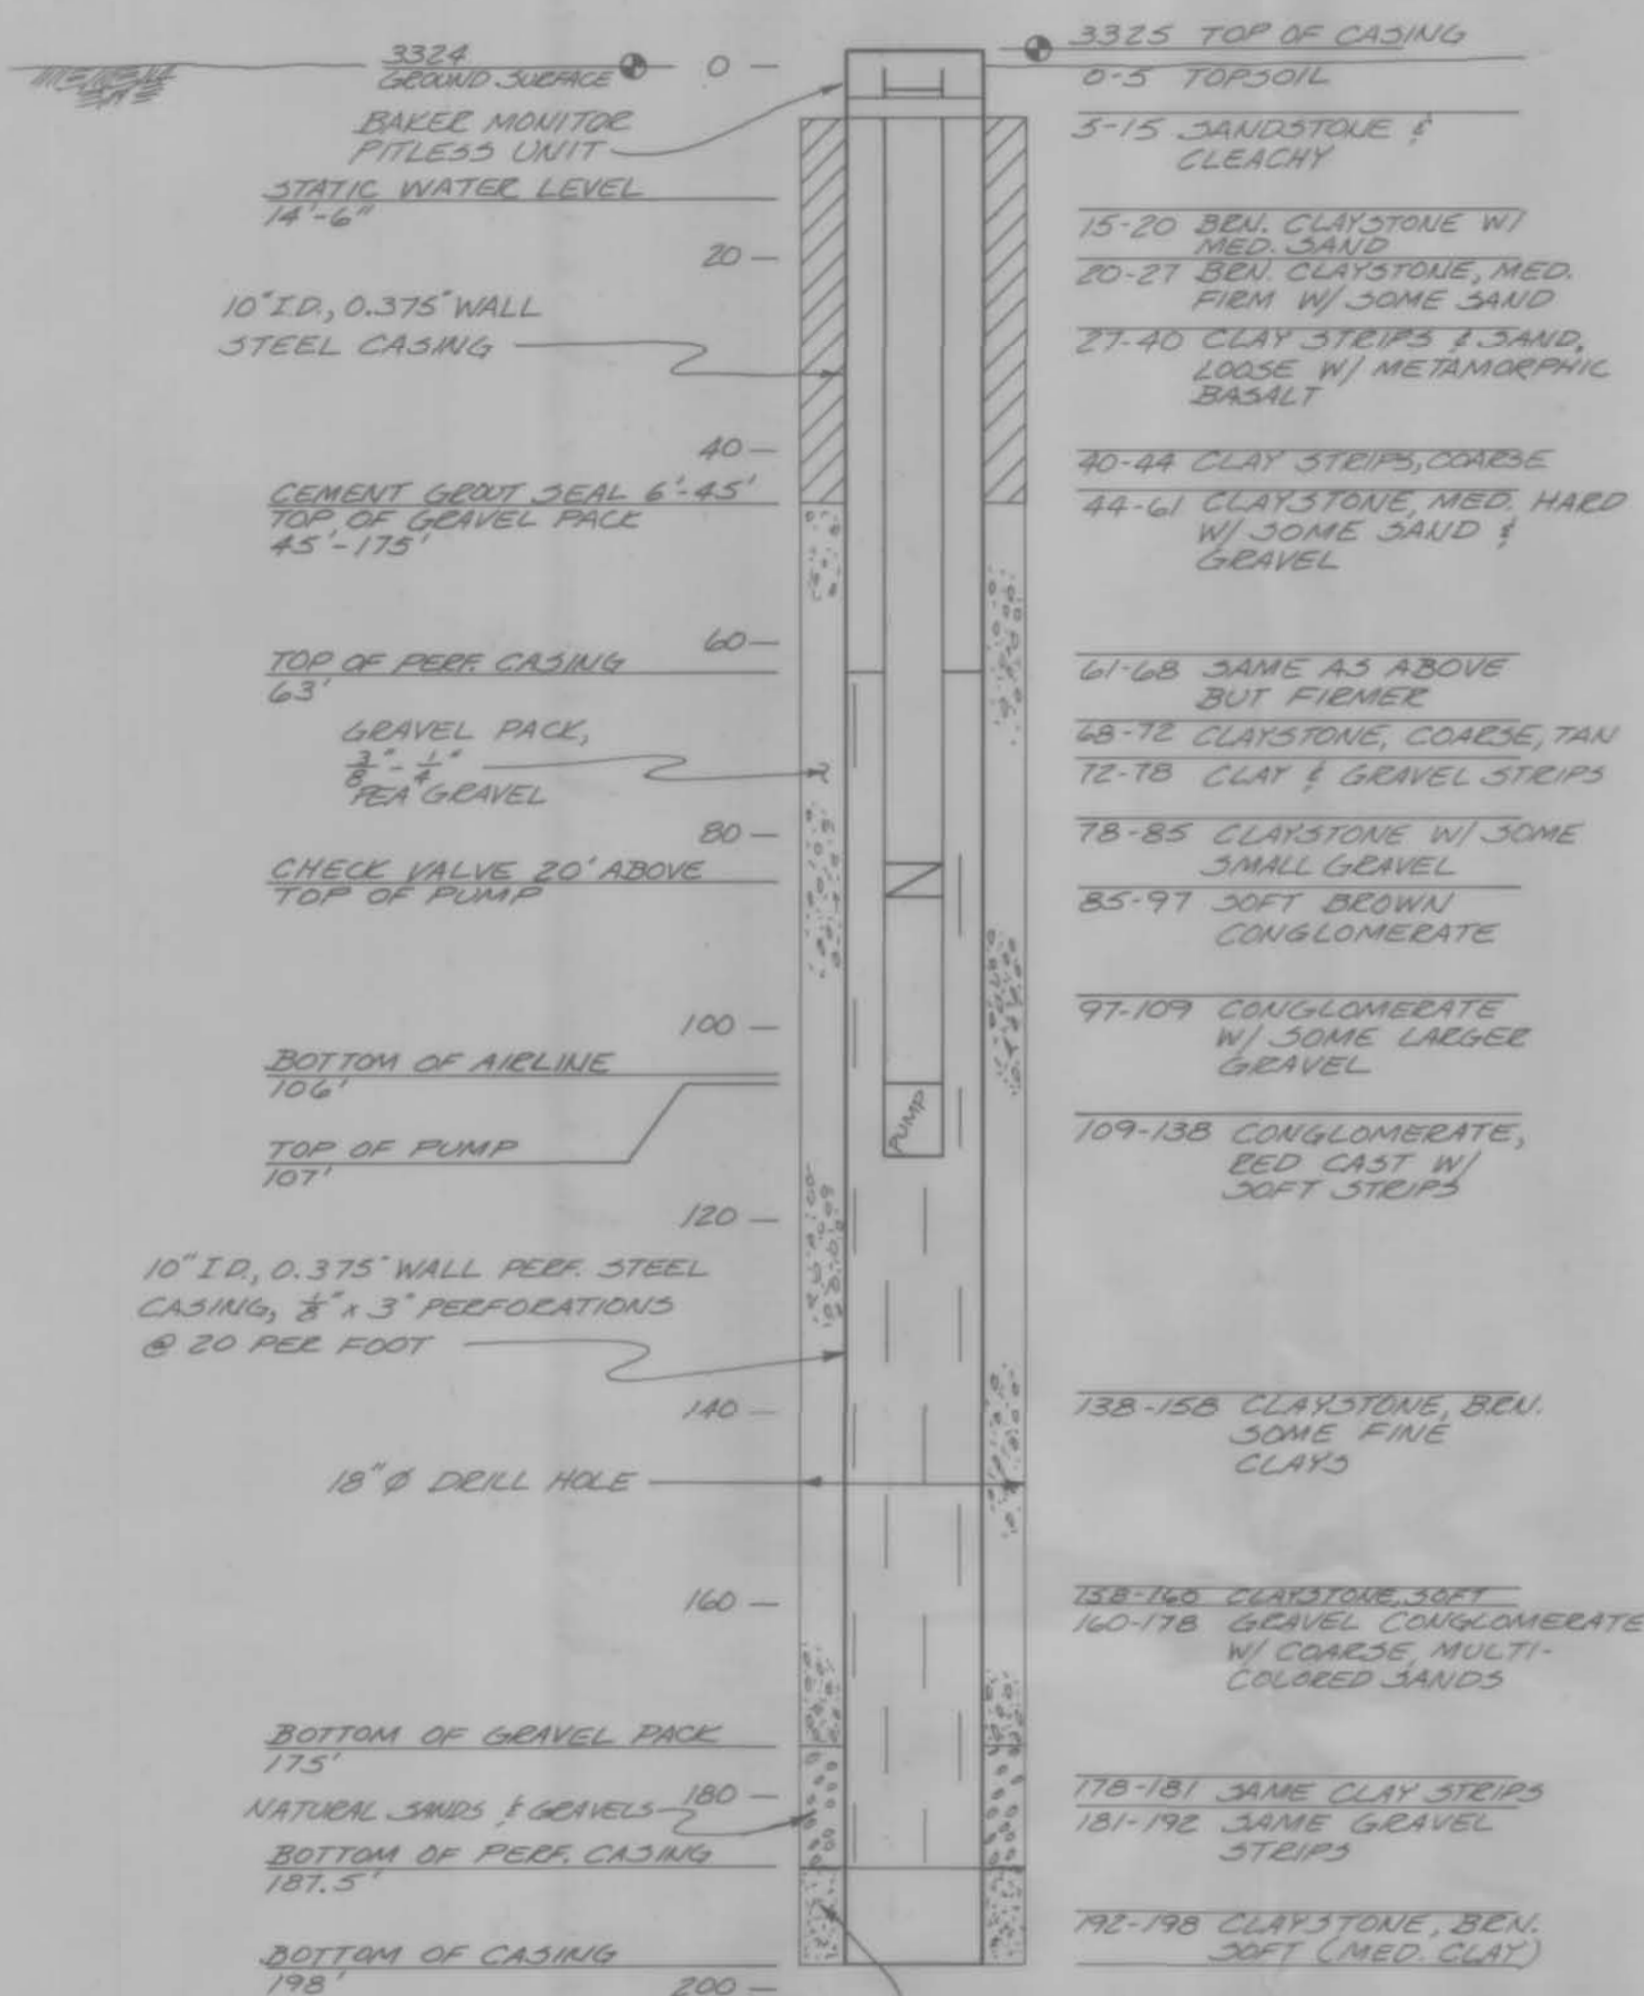 3324
GROUND SURFACE
BAKER MONITOR
PITLESS UNIT
STATIC WATER LEVEL
14'-6"
10" I.D., 0.375" WALL
STEEL CASING
CEMENT GROUT SEAL 6'-45'
TOP OF GRAVEL PACK
45'-175'
TOP OF PERF. CASING
63'
GRAVEL PACK,
3/8" - 1/4"
PEA GRAVEL
CHECK VALVE 20' ABOVE
TOP OF PUMP
BOTTOM OF AIRLINE
106'
TOP OF PUMP
107'
10" I.D., 0.375" WALL PERF. STEEL
CASING, 1/8" x 3" PERFORATIONS
@ 20 PER FOOT
18" Ø DRILL HOLE
BOTTOM OF GRAVEL PACK
175'
NATURAL SANDS & GRAVELS
BOTTOM OF PERF. CASING
187.5'
BOTTOM OF CASING
198'
0
20
40
60
80
100
120
140
160
180
200
PUMP
3325 TOP OF CASING
0-5 TOPSOIL
5-15 SANDSTONE &
CLEACHY
15-20 BRN. CLAYSTONE W/
MED. SAND
20-27 BRN. CLAYSTONE, MED.
FIRM W/ SOME SAND
27-40 CLAY STRIPS & SAND,
LOOSE W/ METAMORPHIC
BASALT
40-44 CLAY STRIPS, COARSE
44-61 CLAYSTONE, MED. HARD
W/ SOME SAND &
GRAVEL
61-68 SAME AS ABOVE
BUT FIRMER
68-72 CLAYSTONE, COARSE, TAN
72-78 CLAY & GRAVEL STRIPS
78-85 CLAYSTONE W/ SOME
SMALL GRAVEL
85-97 SOFT BROWN
CONGLOMERATE
97-109 CONGLOMERATE
W/ SOME LARGER
GRAVEL
109-138 CONGLOMERATE,
RED CAST W/
SOFT STRIPS
138-158 CLAYSTONE, BRN.
SOME FINE
CLAYS
158-160 CLAYSTONE, SOFT
160-178 GRAVEL CONGLOMERATE
W/ COARSE, MULTI-
COLORED SANDS
178-181 SAME CLAY STRIPS
181-192 SAME GRAVEL
STRIPS
192-198 CLAYSTONE, BRN.
SOFT (MED. CLAY)